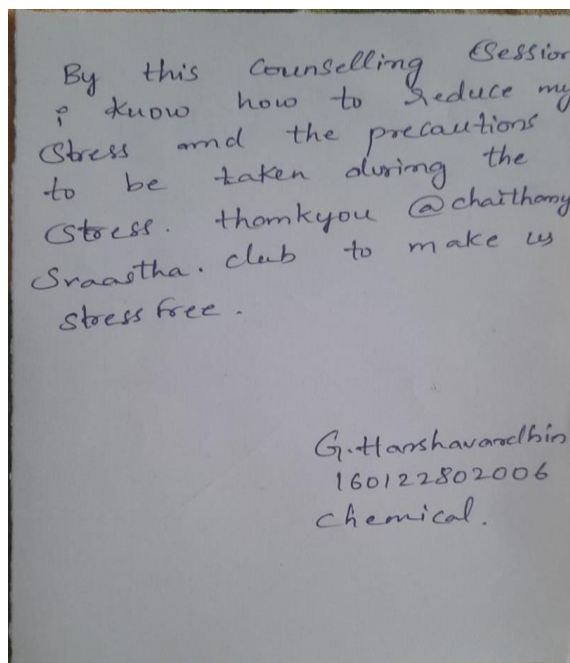 By this Counselling Session
i know how to reduce my
Stress and the precautions
to be taken during the
Stress. thankyou @chaithany
Sraastha. club to make us
stress free.
G. Harshavardhin
160122802006
chemical.